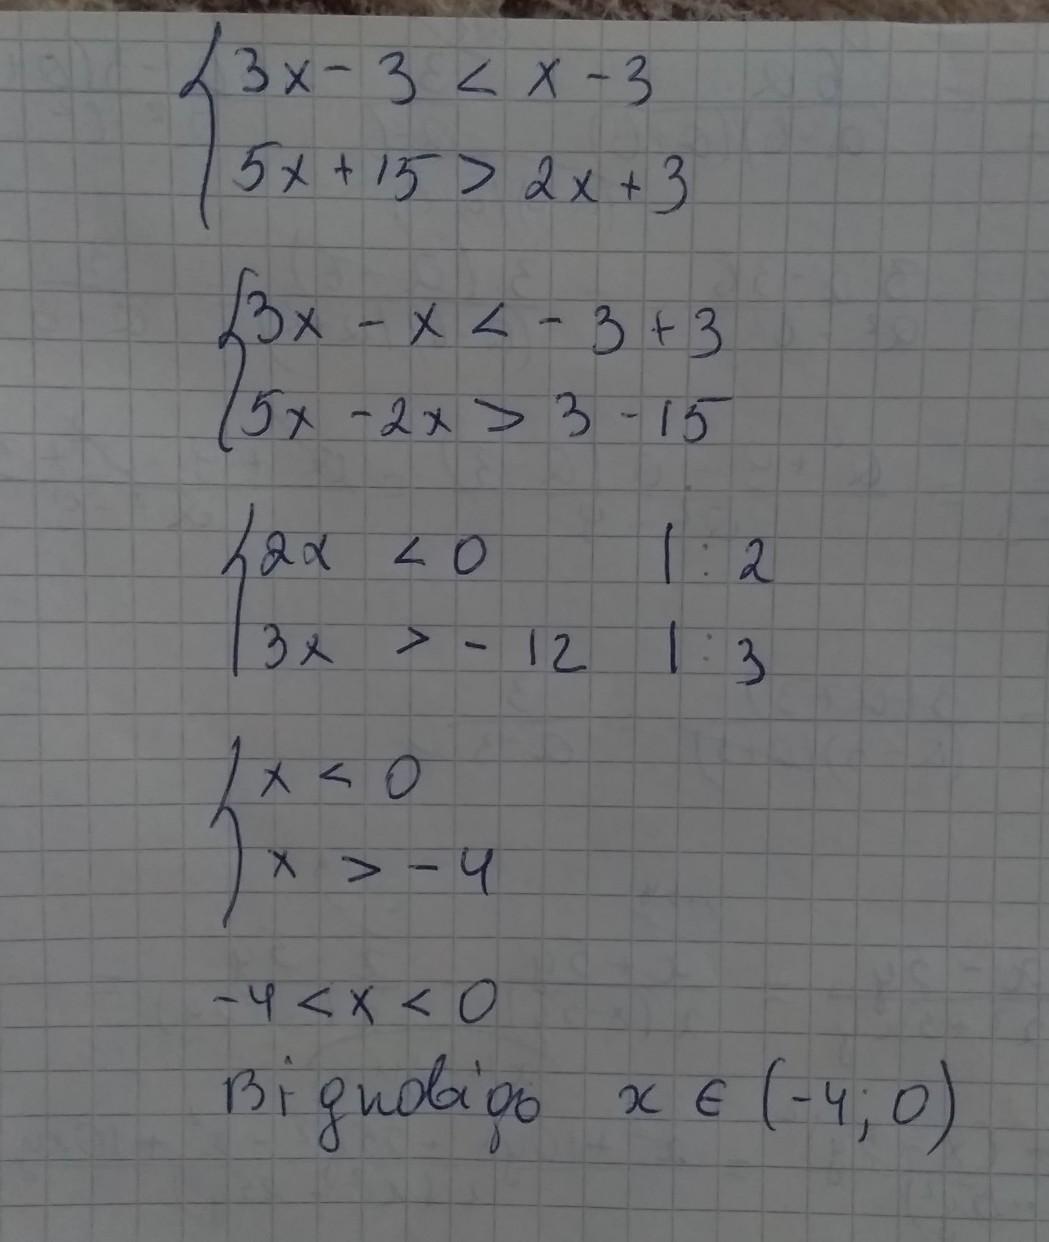 {3x - 3 < x - 3
5x + 15 > 2x + 3
{3x - x < - 3 + 3
5x - 2x > 3 - 15
{2x < 0 | : 2
3x > - 12 | : 3
{x < 0
x > - 4
-4 < x < 0
Відповідь x ∈ (-4; 0)